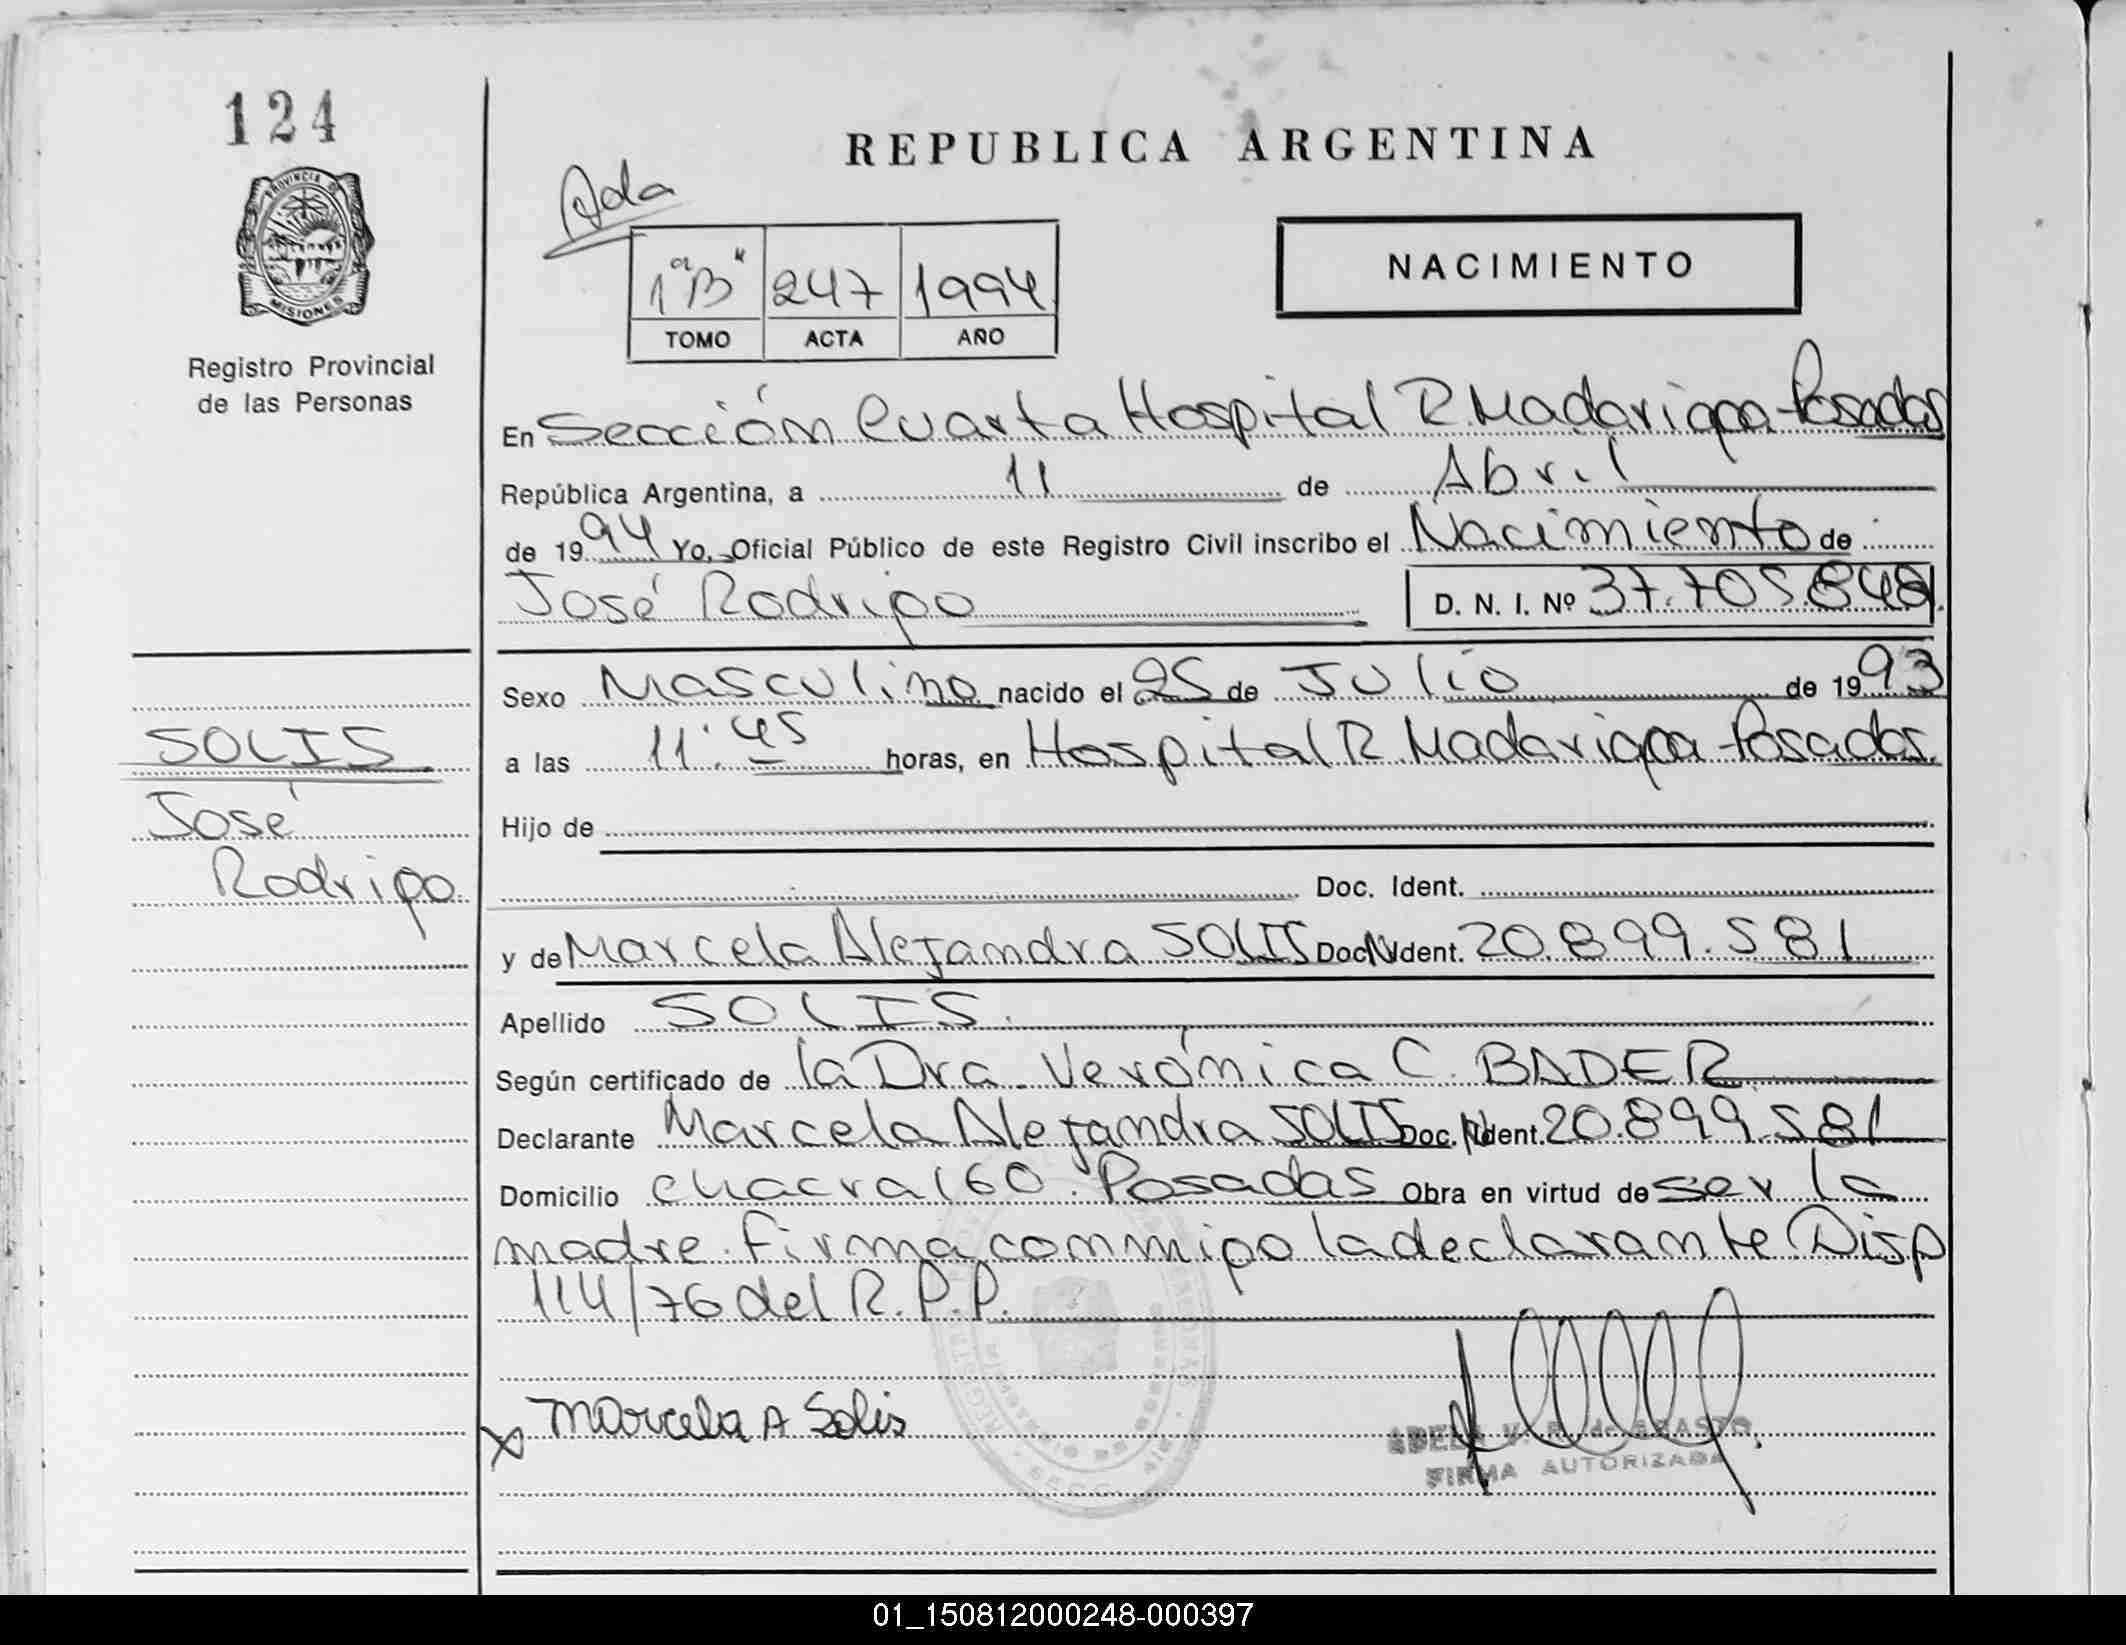 124
PROVINCIA DE
MISIONES
Registro Provincial
de las Personas
REPUBLICA ARGENTINA
Ada
1ª "B" 247 1994
TOMO ACTA AÑO
NACIMIENTO
En Sección Cuarta Hospital R. Madariaga - Posadas
República Argentina, a 11 de Abril
de 1994 Yo, Oficial Público de este Registro Civil inscribo el Nacimiento de
José Rodrigo D. N. I. Nº 37.705.848
Sexo Masculino nacido el 25 de Julio de 1993
a las 11:45 horas, en Hospital R. Madariaga - Posadas.
Hijo de
Doc. Ident.
y de Marcela Alejandra SOLIS Doc. Ident. 20.899.581
Apellido SOLIS.
Según certificado de la Dra. Verónica C. BADER
Declarante Marcela Alejandra SOLIS Doc. Ident. 20.899.581
Domicilio chacra 160. Posadas Obra en virtud de ser la
madre. Firma conmigo la declarante Disp
114/76 del R.P.P.
x Marcela A Solis
FIRMA AUTORIZADA
SOLIS
José
Rodrigo
01_150812000248-000397